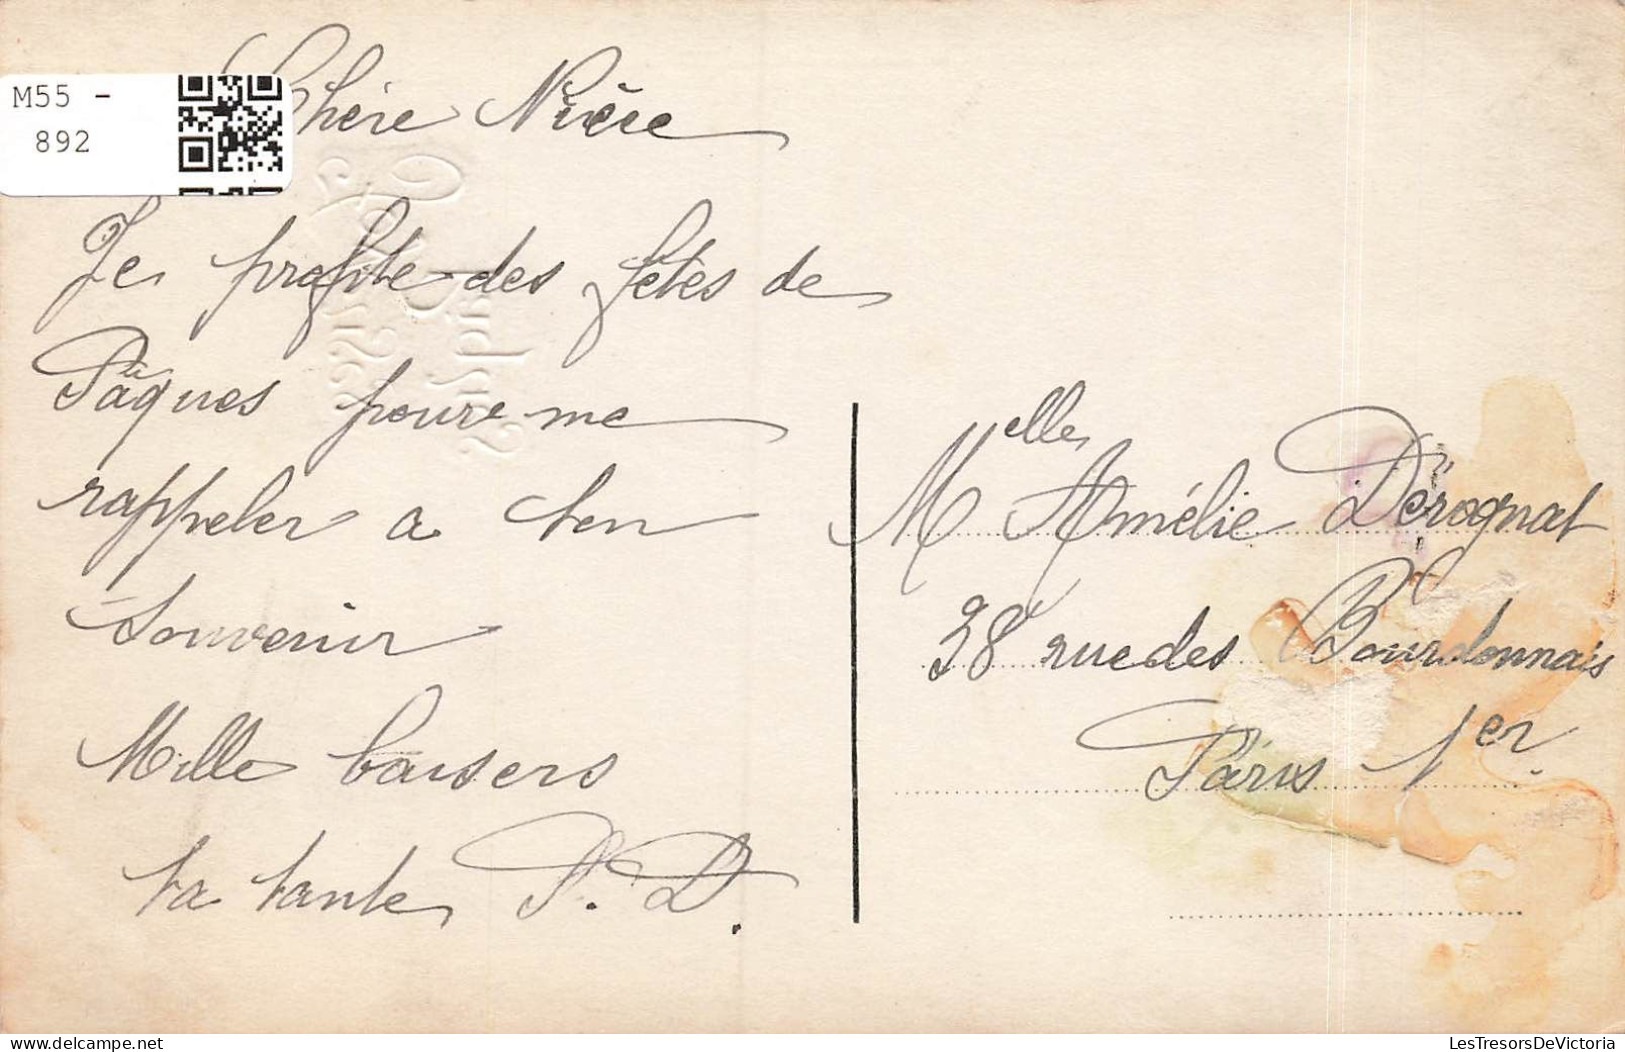 M55 -
892
Chère Nièce
Je profite des fêtes de
Pâques pour me
rappeler a ton
Souvenir
Mille baisers
ta tante P. D.
Melle Amélie Dérognat
38 rue des Bourdonnais
Paris 1er.
delcampe.net
LesTresorsDeVictoria